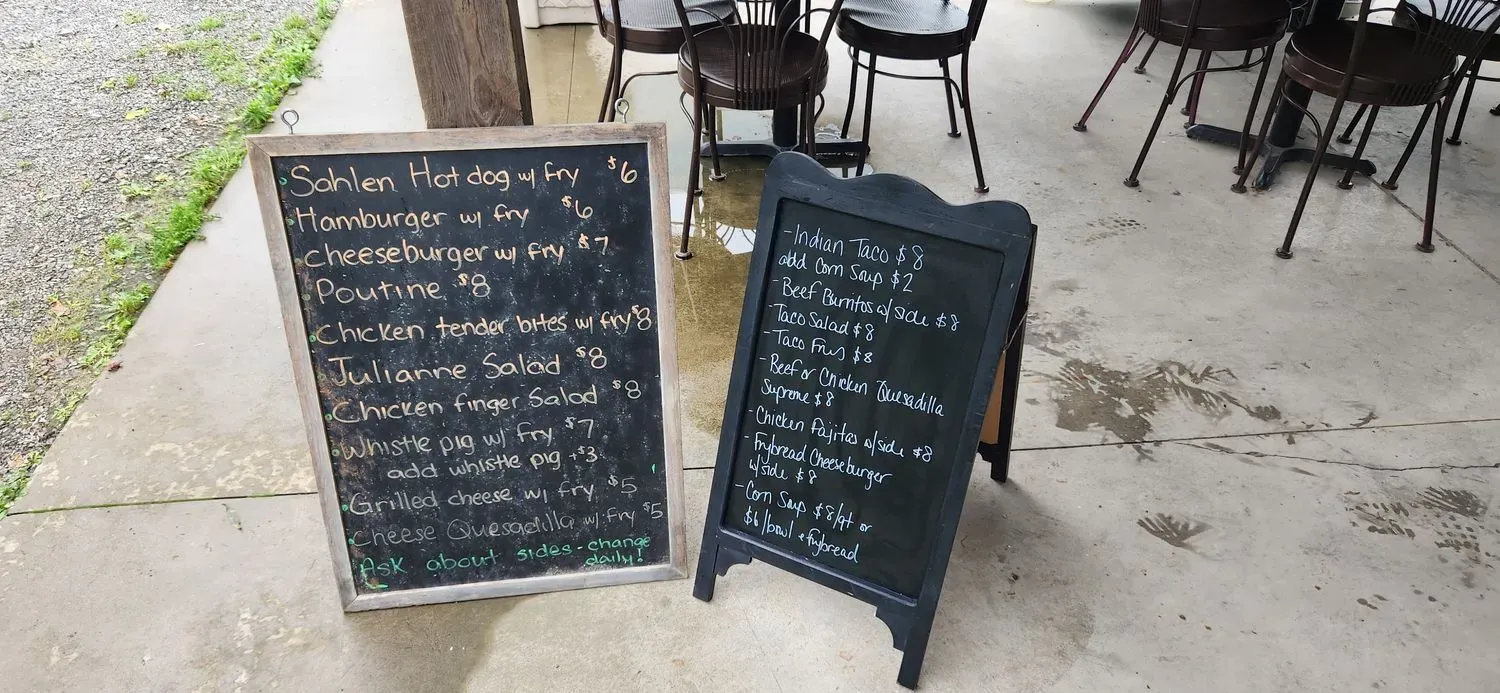 Sahlen Hot dog w/ fry $6
Hamburger w/ fry $6
cheeseburger w/ fry $7
Poutine $8
Chicken tender bites w/ fry $8
Julianne Salad $8
Chicken finger Salad $8
Whistle pig w/ fry $7
add whistle pig +$3
Grilled cheese w/ fry $5
Cheese Quesadilla w/ fry $5
Ask about sides - change
daily!
- Indian Taco $8
add Corn Soup $2
- Beef Burritos w/side $8
- Taco Salad $8
- Taco Fries $8
- Beef or Chicken Quesadilla
Supreme $8
- Chicken Fajitas w/side $8
- Frybread Cheeseburger
w/side $8
- Corn Soup $8/qt or
$6/bowl + frybread